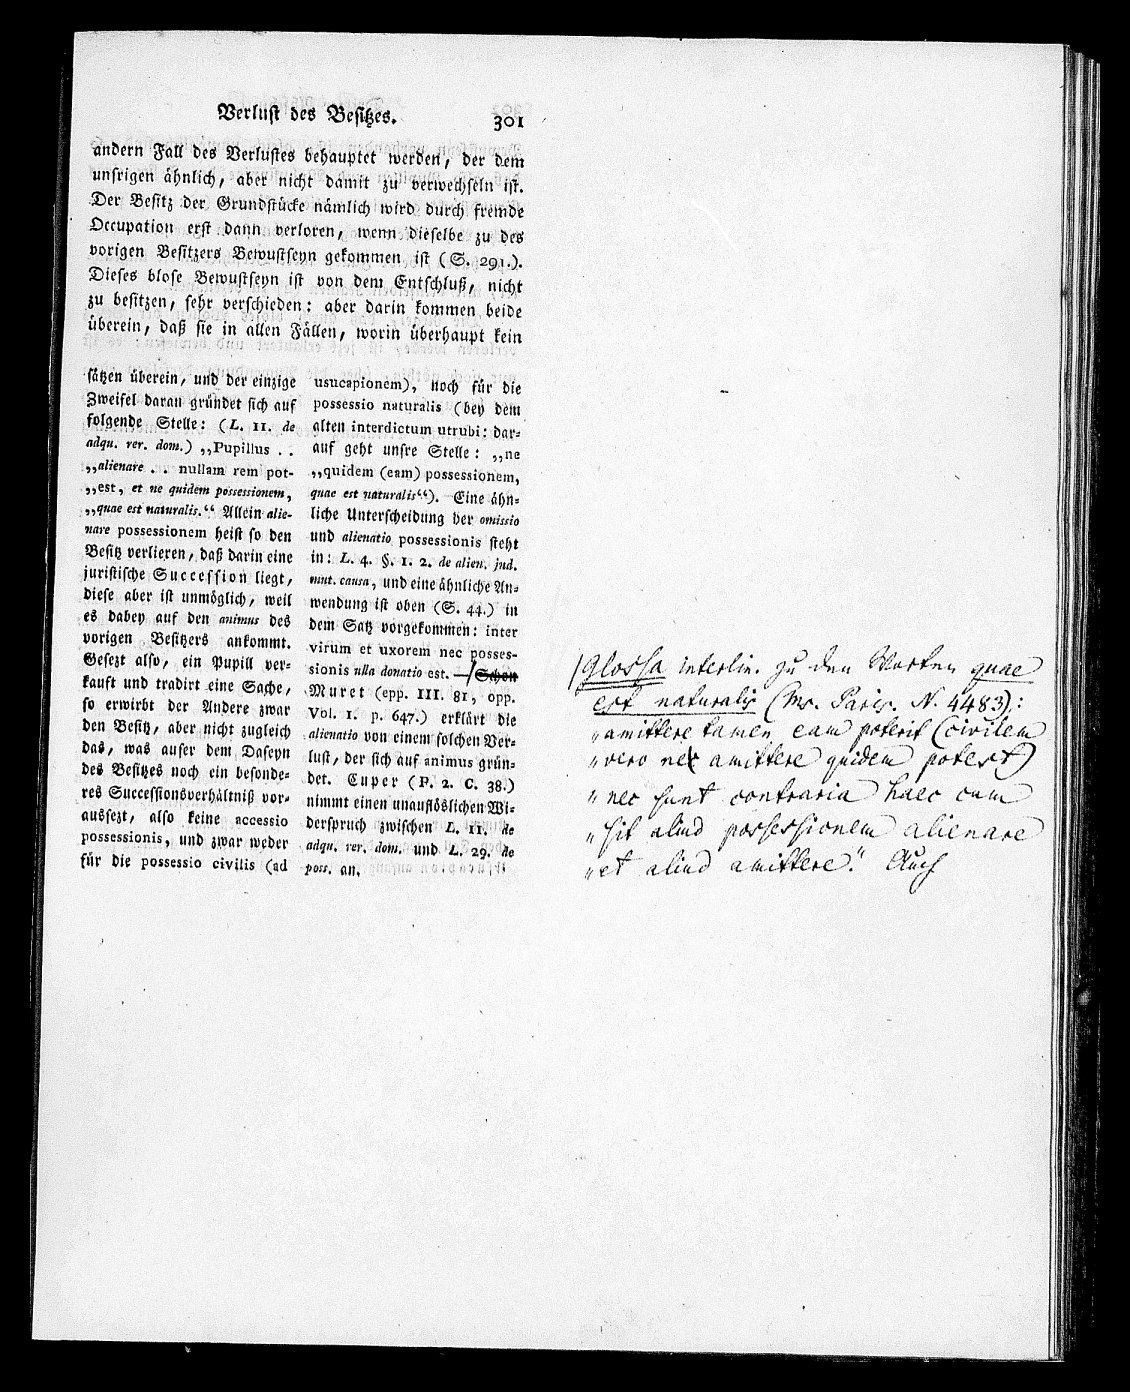 Verlust des Besitzes. 301
andern Fall des Verlustes behauptet werden, der dem
unsrigen ähnlich, aber nicht damit zu verwechseln ist.
Der Besitz der Grundstücke nämlich wird durch fremde
Occupation erst dann verloren, wenn dieselbe zu des
vorigen Besitzers Bewustseyn gekommen ist (S. 291.).
Dieses blose Bewustseyn ist von dem Entschluß, nicht
zu besitzen, sehr verschieden: aber darin kommen beide
überein, daß sie in allen Fällen, worin überhaupt kein
sätzen überein, und der einzige
Zweifel daran gründet sich auf
folgende Stelle: (L. 11. de
adqu. rer. dom.) „Pupillus . .
„alienare . . nullam rem pot-
„est, et ne quidem possessionem,
„quae est naturalis.“ Allein alie-
nare possessionem heist so den
Besitz verlieren, daß darin eine
juristische Succession liegt,
diese aber ist unmöglich, weil
es dabey auf den animus des
vorigen Besitzers ankommt.
Gesezt also, ein Pupill ver-
kauft und tradirt eine Sache,
so erwirbt der Andere zwar
den Besitz, aber nicht zugleich
das, was auser dem Daseyn
des Besitzes noch ein besonde-
res Successionsverhältniß vor-
aussezt, also keine accessio
possessionis, und zwar weder
für die possessio civilis (ad
usucapionem), noch für die
possessio naturalis (bey dem
alten interdictum utrubi: dar-
auf geht unsre Stelle: „ne
„quidem (eam) possessionem,
quae est naturalis“). Eine ähn-
liche Unterscheidung der omissio
und alienatio possessionis steht
in: L. 4. §. 1. 2. de alien. jud.
mut. causa, und eine ähnliche An-
wendung ist oben (S. 44.) in
dem Satz vorgekommen: inter
virum et uxorem nec posses-
sionis ulla donatio est. — Schon
Muret (epp. III. 81, opp.
Vol. 1. p. 647.) erklärt die
alienatio von einem solchen Ver-
lust, der sich auf animus grün-
det. Cuper (P. 2. C. 38.)
nimmt einen unauflöslichen Wi-
derspruch zwischen L. 11. de
adqu. rer. dom. und L. 29. de
poss. an.
Glossa interlin. zu den Worten quae
est naturalis (Ms. Paris. N. 4483):
„amittere tamen eam poterit (civilem
„vero nec amittere quidem potest)
„nec sunt contraria haec cum
„sit aliud possessionem alienare
„et aliud amittere.“ Auch